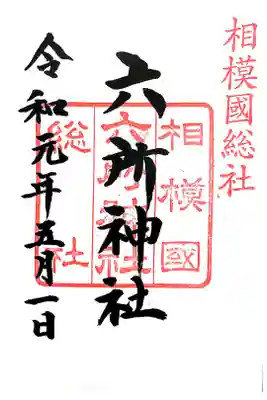 相模國総社
六所神社
相模國
六所神社
総社
令和元年五月一日